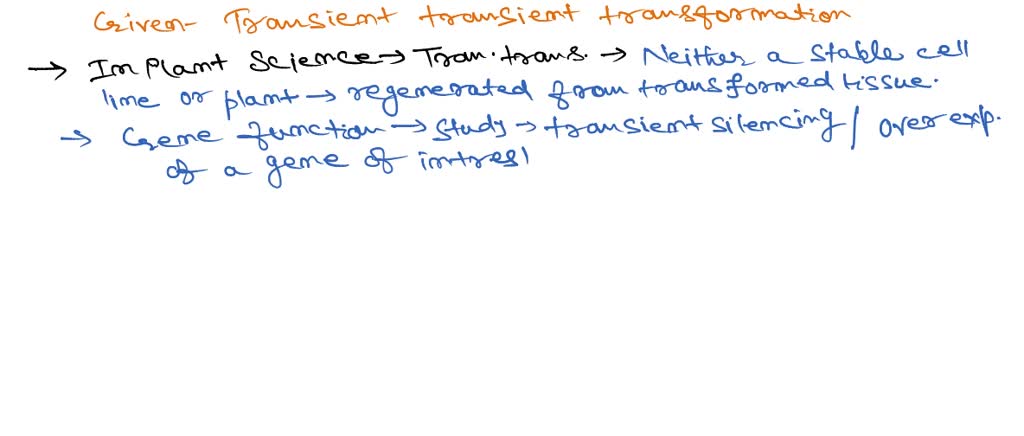 Given- Transient transient transformation
→ In Plant Science → Tran. trans. → Neither a stable cell
line or plant → regenerated from transformed tissue.
→ Gene function → Study → transient silencing / over exp.
of a gene of intrest